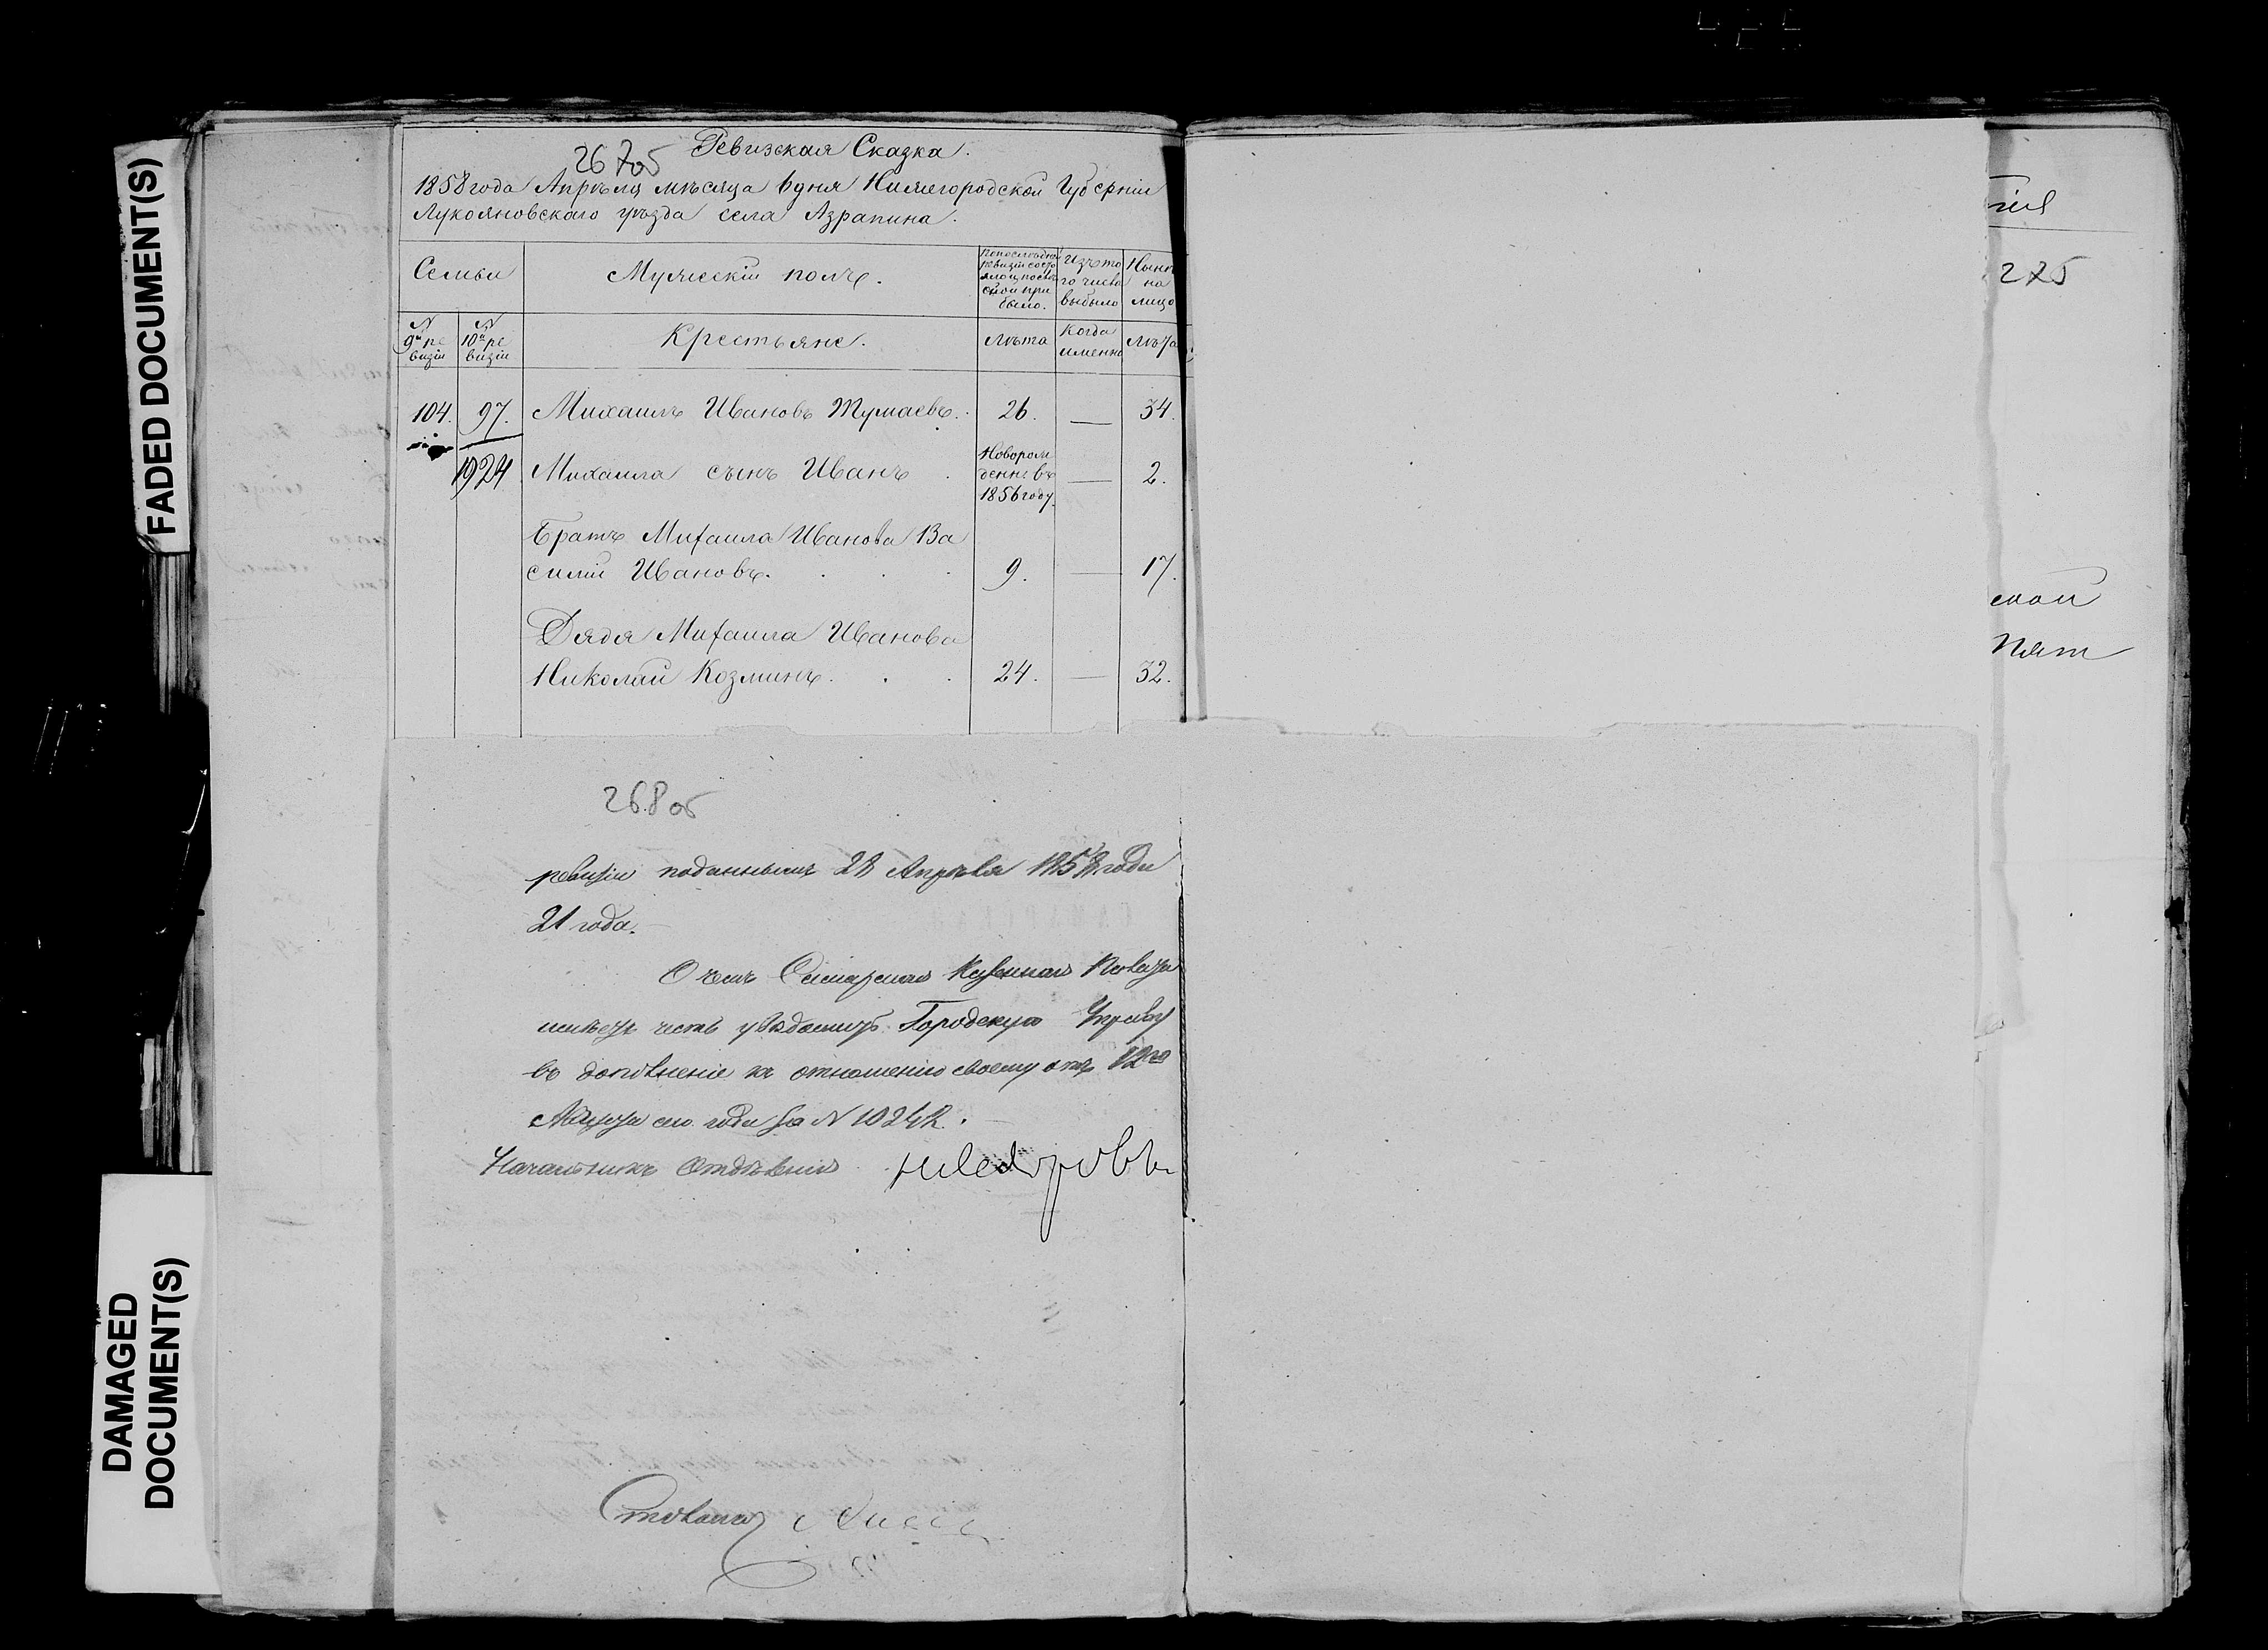 FADED DOCUMENT(S)
DAMAGED
DOCUMENT(S)
267об
Ревизская Сказка.
1858 года Апрѣля мѣсяца 6 дня Нижегородской Губерніи
Лукояновскаго уѣзда села Азрапина.
Семьи
Мужескій полъ.
По послѣдней ревизіи состояло и послѣ оной прибыло.
Изъ того числа выбыло
Нынѣ на лицо
№ 9й ревизіи
№ 10й ревизіи
Крестьяне.
Лѣта
Когда именно
Лѣта
104. 97. Михаилъ Ивановъ Тумаевъ. 26. — 34.
1924 Михаила сынъ Иванъ . Новорожденъ въ 1856 году. — 2.
Братъ Михаила Иванова Ва
силій Ивановъ. . . . 9. — 17.
Дядя Михаила Иванова
Николай Козминъ. . . 24. — 32.
268об
ревизіи поданнымъ 28 Апрѣля 1858 года
21 года.
О чемъ Казенная Палата
имѣетъ честь увѣдомить Городскую Управу
въ дополненіе къ отношенію своему отъ 12го
сего года за № 10242.
Начальникъ Отдѣленія
275
ской
Пят